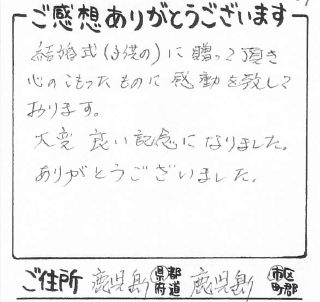 ご感想ありがとうございます
結婚式(子供の)に贈って頂き
心のこもったものに感動を致して
おります。
大変 良い記念になりました。
ありがとうございました。
ご住所 鹿児島 県都府道 鹿児島 市区町郡